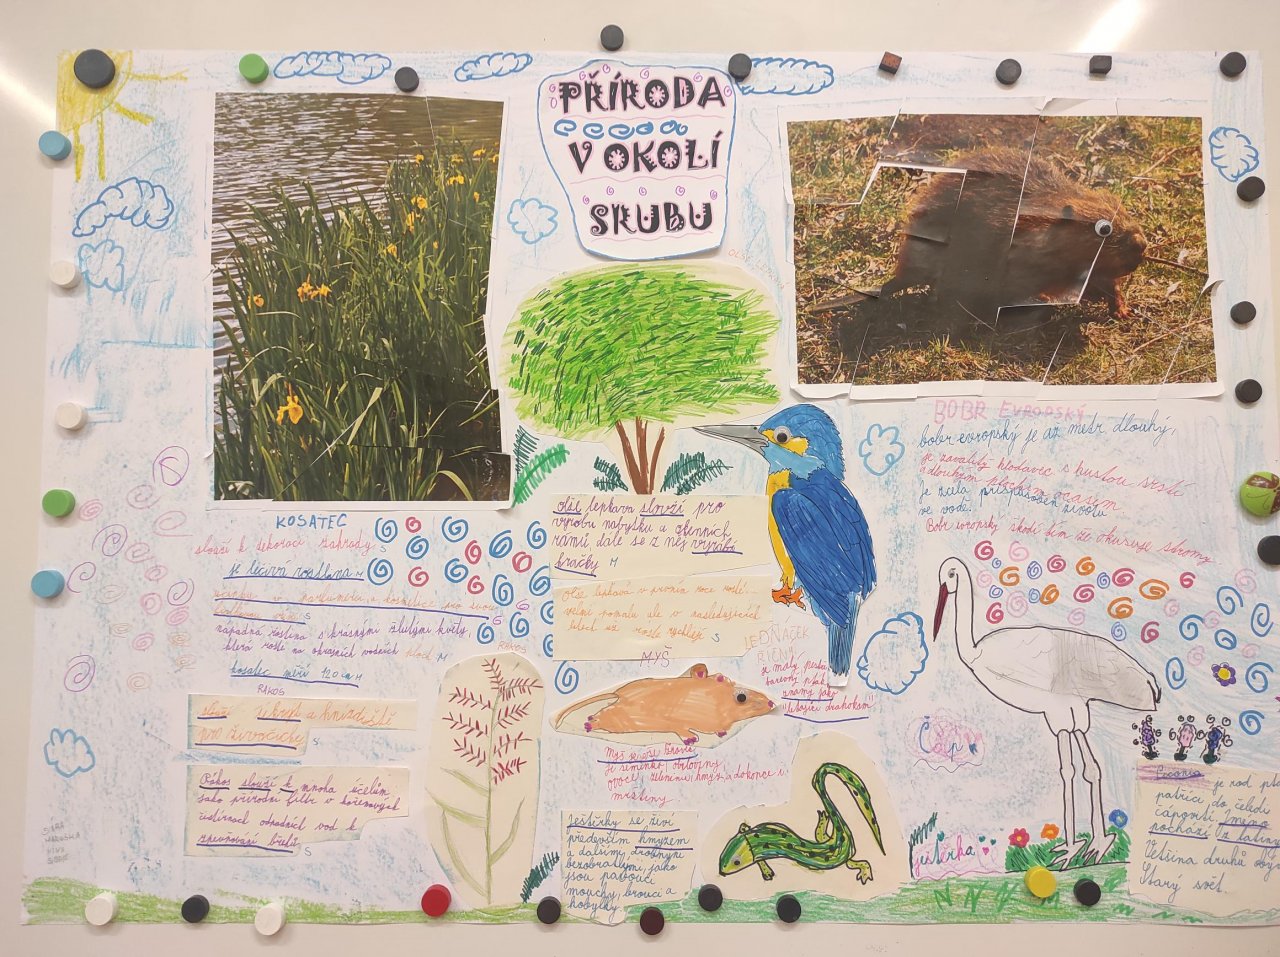 PŘÍRODA
V OKOLÍ
SRUBU
OLŠE LEPKAVÁ
KOSATEC
slouží k dekoraci zahrady. S
je léčivá rostlina M
a kosmetice pro svou
nápadná rostlina s krásnými žlutými květy,
která roste na okrajích vodních ploch M
kosatec měří 120 cm M
RÁKOS
slouží úkryt a hnízdiště
pro živočichy S
Rákos slouží k mnoha účelům
jako přírodní filtr v kořenových
čistírnách odpadních vod k
zpevňování břehů. S
SÁRA
MARUŠKA
RÁKOS
olše lepkavá slouží pro
výrobu nábytku a okenních
rámů dále se z něj vyrábí
hračky M
Olše lepkavá v prvním roce roste
velmi pomalu ale v následujících
letech už roste rychleji S
MYŠ
Myš je
je semínka, obiloviny,
ovoce, zeleninu, hmyz, a dokonce i
mršiny
LEDŇÁČEK
ŘÍČNÍ
je malý pestrobarevný
pták
známý jako
"létající drahokam"
BOBR EVROPSKÝ
bobr evropský je až metr dlouhý,
je zavalitý hlodavec s hustou srstí
a dlouhým plochým ocasem.
Je zcela přizpůsoben životu
ve vodě.
Bobr evropský škodí tím že okusuje stromy
Čáp
Ještěrky se živí
především hmyzem
a dalšími drobnými
bezobratlými, jako
jsou pavouci
mouchy, brouci a
kobylky.
ještěrka
Ciconia je rod pta
patřící do čeledi
čápovití. Jméno
pochází z latiny
Většina druhů oby
Starý svět.